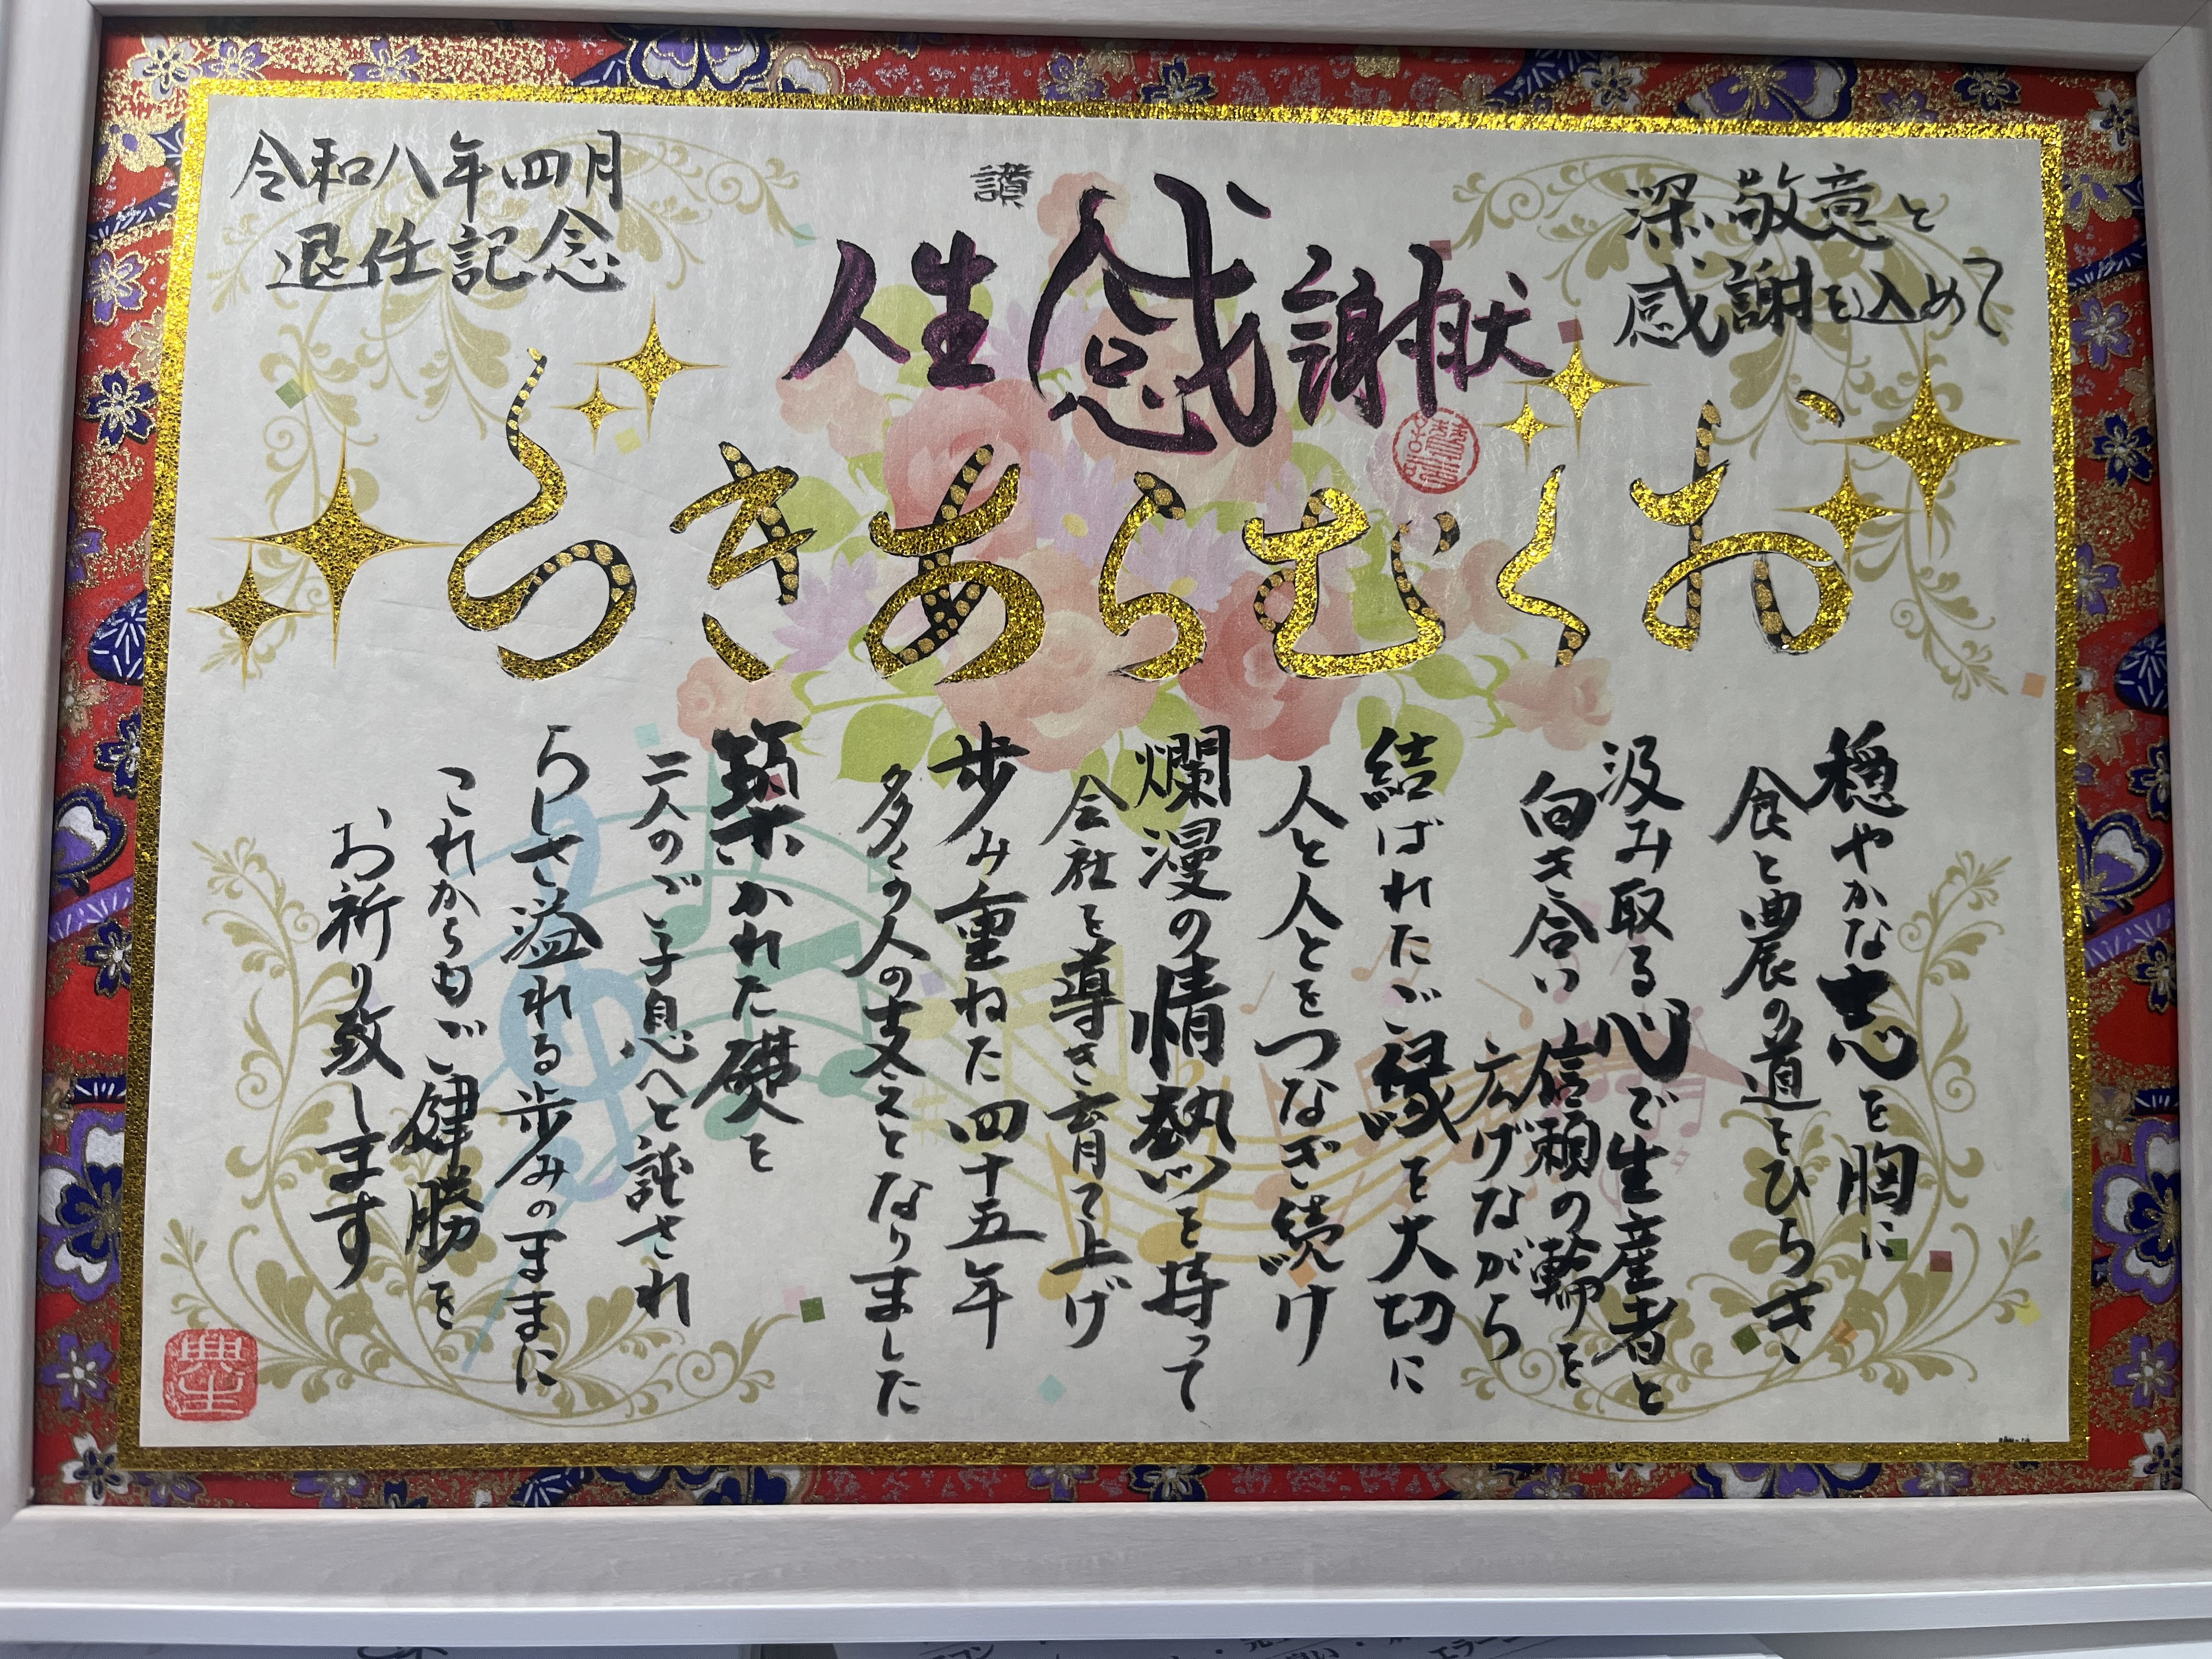 深い敬意と
感謝を込めて
讃
人生感謝状
令和八年四月
退任記念
おくむらあきら
穏やかな志を胸に
食と農の道をひらき、
汲み取る心で生産者と
向き合い 信頼の輪を
広げながら
結ばれたご縁を大切に
人と人とをつなぎ続け
爛漫の情熱を持って
会社を導き育て上げ
歩み重ねた四十五年
多くの人の支えとなりました
築かれた礎を
二人のご子息へと託され
らしさ溢れる歩みのままに
これからもご健勝を
お祈り致します